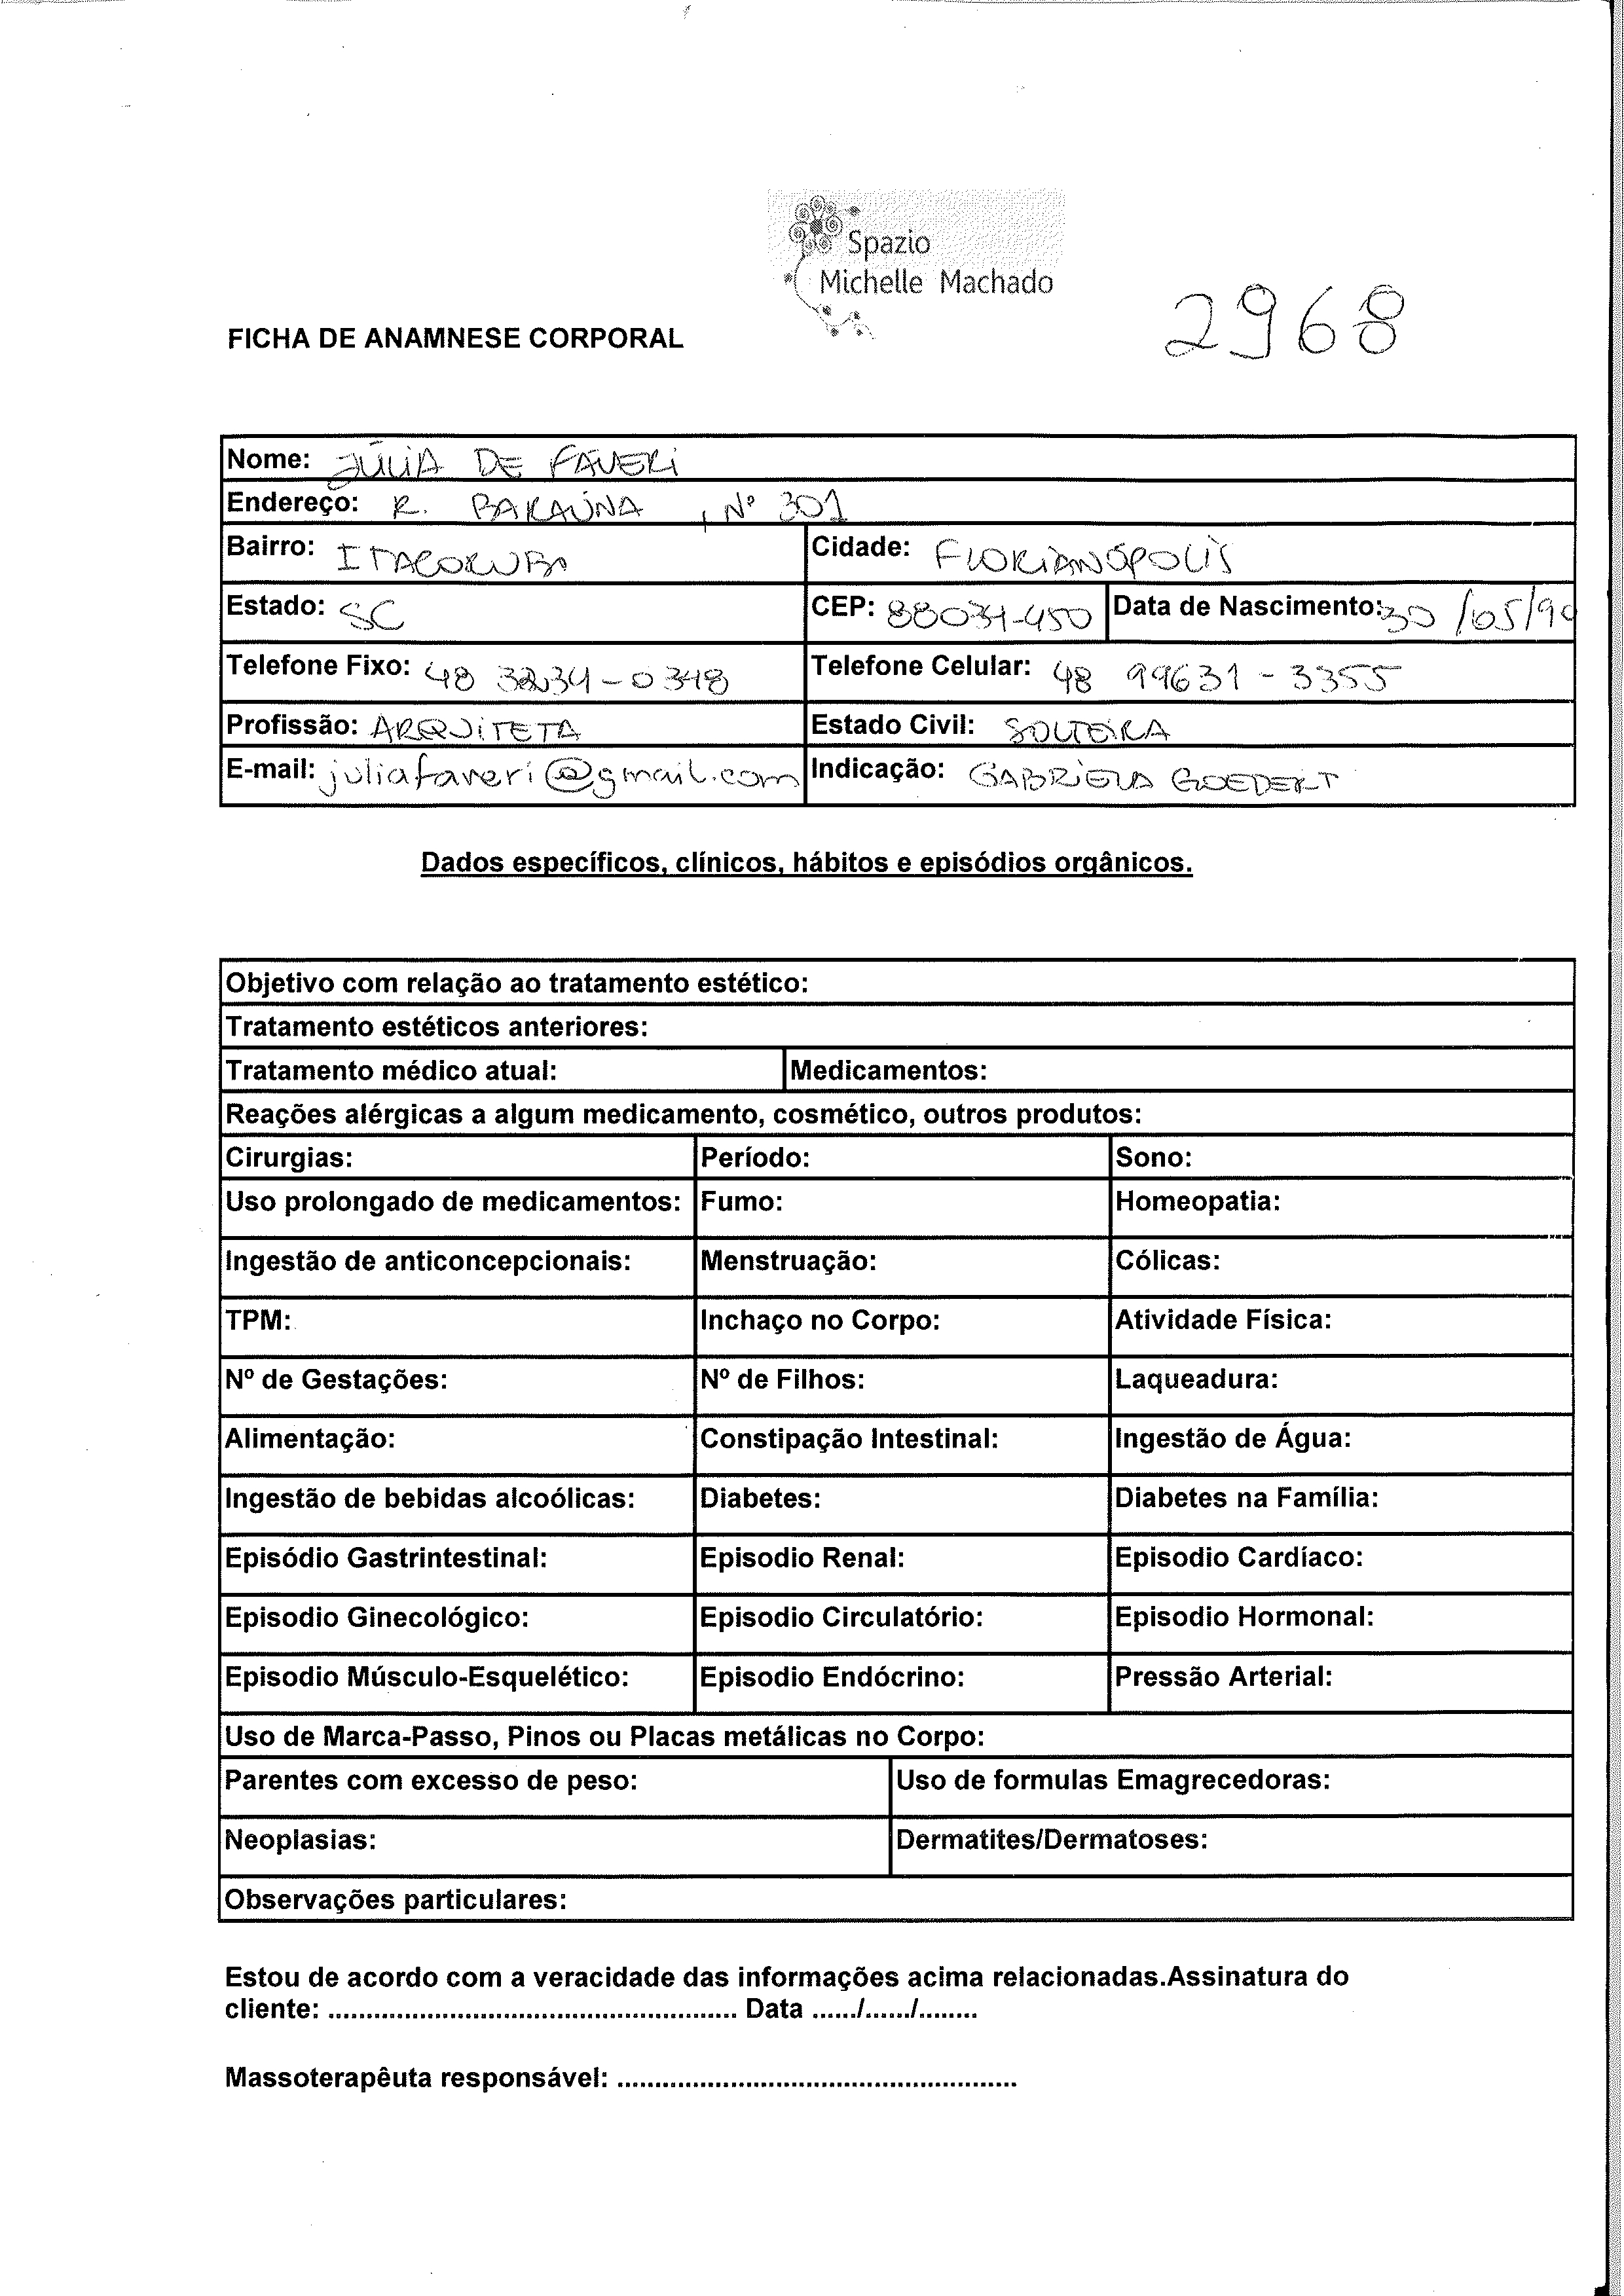 Spazio
Michelle Machado
2968
FICHA DE ANAMNESE CORPORAL
Nome: JÚLIA DE FÁVERI
Endereço: R. BARAÚNA , Nº 301
Bairro: ITACORUBI Cidade: FLORIANÓPOLIS
Estado: SC CEP: 88034-450 Data de Nascimento: 30 /05/90
Telefone Fixo: 48 3234-0348 Telefone Celular: 48 99631-3355
Profissão: ARQUITETA Estado Civil: SOLTEIRA
E-mail: juliafaveri@gmail.com Indicação: GABRIELA GOEDERT
Dados específicos, clínicos, hábitos e episódios orgânicos.
Objetivo com relação ao tratamento estético:
Tratamento estéticos anteriores:
Tratamento médico atual: Medicamentos:
Reações alérgicas a algum medicamento, cosmético, outros produtos:
Cirurgias: Período: Sono:
Uso prolongado de medicamentos: Fumo: Homeopatia:
Ingestão de anticoncepcionais: Menstruação: Cólicas:
TPM: Inchaço no Corpo: Atividade Física:
Nº de Gestações: Nº de Filhos: Laqueadura:
Alimentação: Constipação Intestinal: Ingestão de Água:
Ingestão de bebidas alcoólicas: Diabetes: Diabetes na Família:
Episódio Gastrintestinal: Episodio Renal: Episodio Cardíaco:
Episodio Ginecológico: Episodio Circulatório: Episodio Hormonal:
Episodio Músculo-Esquelético: Episodio Endócrino: Pressão Arterial:
Uso de Marca-Passo, Pinos ou Placas metálicas no Corpo:
Parentes com excesso de peso: Uso de formulas Emagrecedoras:
Neoplasias: Dermatites/Dermatoses:
Observações particulares:
Estou de acordo com a veracidade das informações acima relacionadas.Assinatura do
cliente: ...................................................... Data ....../....../........
Massoterapêuta responsável: .....................................................